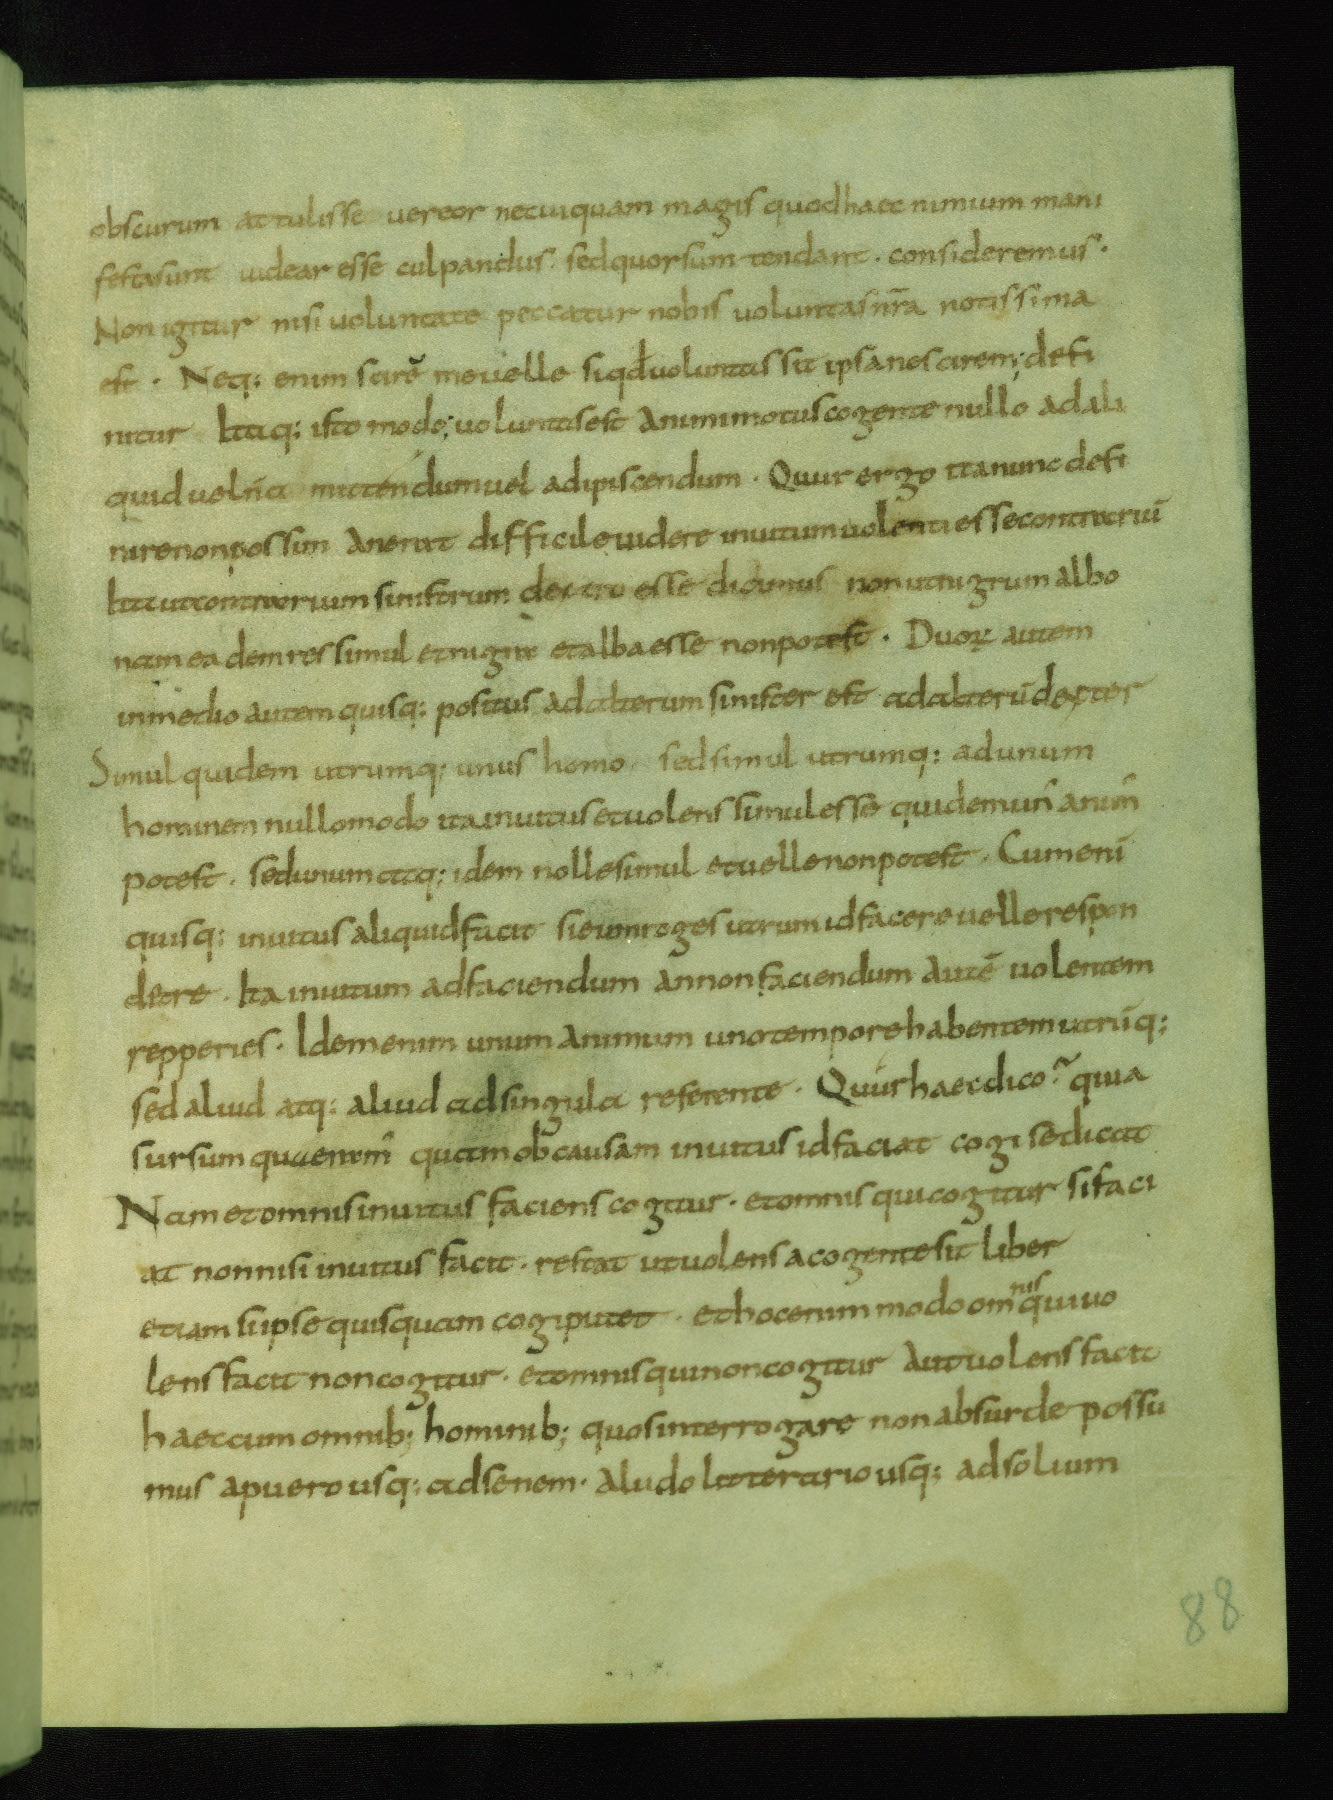 obscurum attulisse vereor necuiquam magis quodhaec nimium mani
festasunt uidear esse culpandus. sedquorsum tendant. consideremus.
Non igitur nisi uoluntate peccatur nobis uoluntasnr̄a notissima
est. Neq; enim scirē meuelle siqđuoluntas sit ipsanescirem; defi
nitur Itaq; isto modo; uoluntasest Animimotuscogente nullo adali
quid uelñ amittendumuel adipiscendum. Quur ergo itanunc defi
nirenonpossim Anerat difficileuidere inuitumuolenti essecontrariū
Itautcontrarium sinistrum dextro esse dicimus nonutnigrumalbo
nam eademres simul etnigra etalbaesse nonpotest. Duoꝝ autem
inmedio autem quisq; positus adalterum sinister est adalterū dexter
Simul quidem utrumq; unus homo. sedsimul utrumq; adunum
hominem nullomodo itainuitusetuolens simulesse quidemun̄ anim̄
potest. sedunumatq; idem nollesimul etuellenonpotest. Cumenī
quisq; inuitus aliquidfacit sieumroges utrumidfacereuellerespon
detre. Ita inuitum adfaciendum annonfaciendum autē uolentem
repperies. Idemenim unum animum unotemporehabentemutrūq;
sed aliud atq; aliud adsingula referente. Quur haecdico? quia
sursumquaerim̄ quamobcausam inuitus idfaciat cogi sedicat
Nam etomnisinuitus faciens cogitur. etomnis quicogitur sifaci
at nonnisi inuitus facit. restat utuolens acogentesit liber
etiam siipse quisquam cogiputet. ethocenim modo omnisquiuo
lensfacit noncogitur. etomnisquinoncogitur Autuolensfacit
haeccumomnib; hominib; quosinterrogare nonabsurde possu
mus apuero usq; adsenem. Aludo litterario usq; adsolium
88